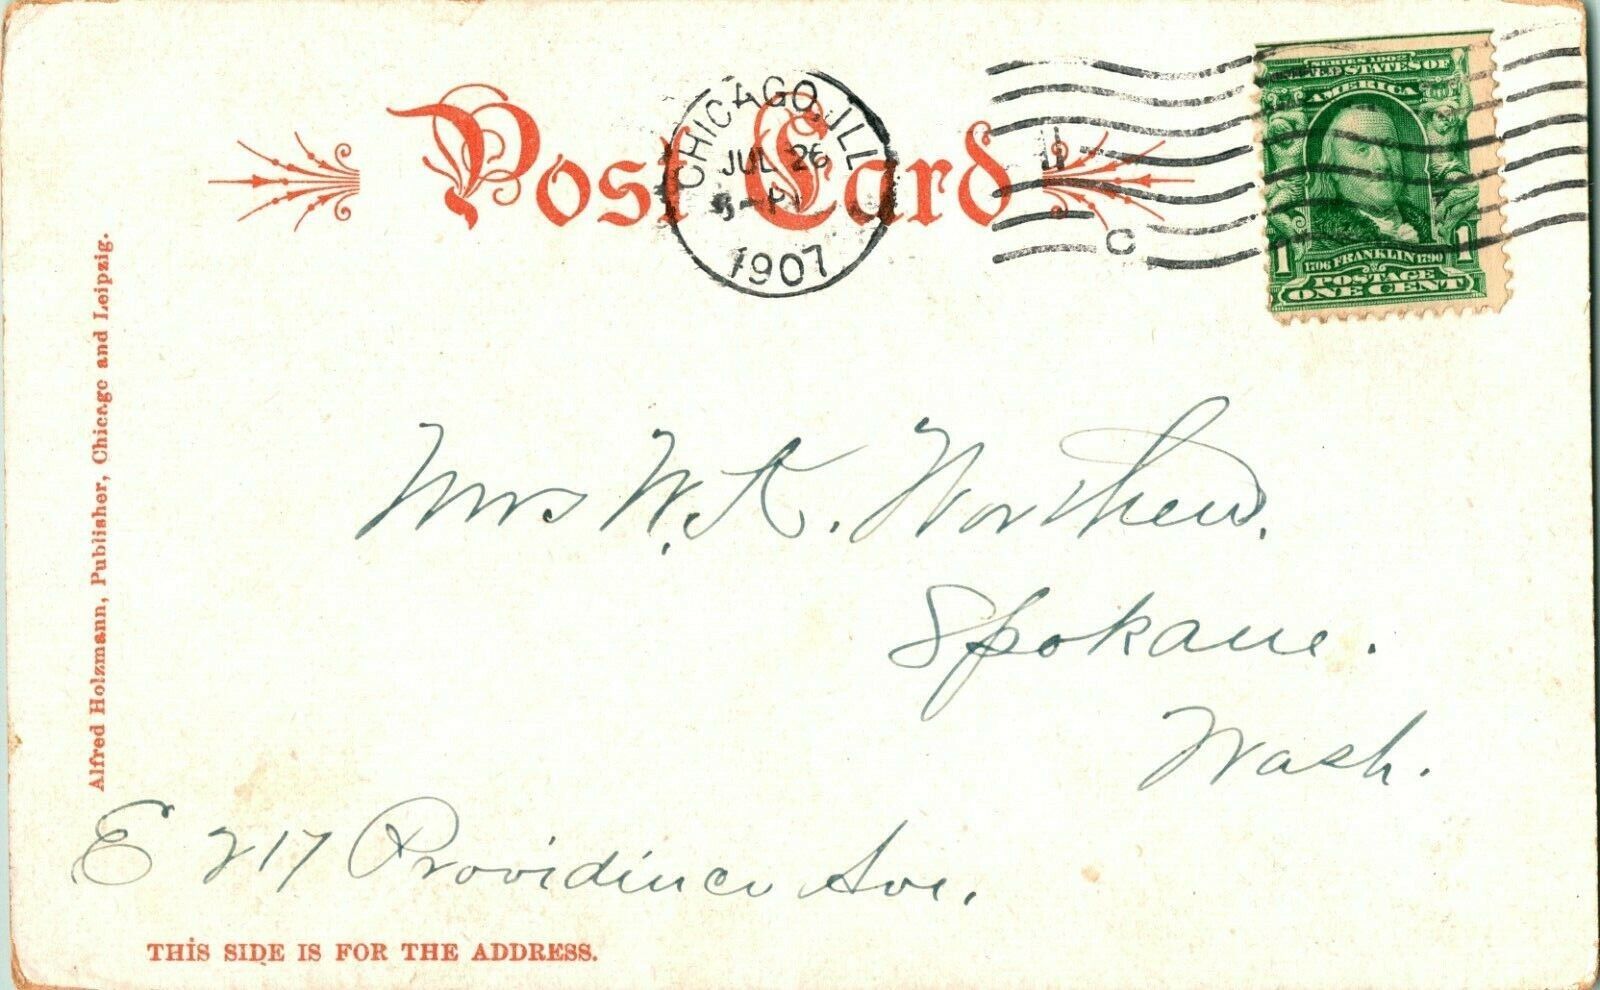 Post Card
CHICAGO, ILL
JUL 26
1907
C
SERIES 1902
UNITED STATES OF
AMERICA
1706 FRANKLIN 1790
1 1
POSTAGE
ONE CENT
Alfred Holzmann, Publisher, Chicago and Leipzig.
Mrs W. A.
Spokane.
Wash.
E 217 Providence Ave.
THIS SIDE IS FOR THE ADDRESS.